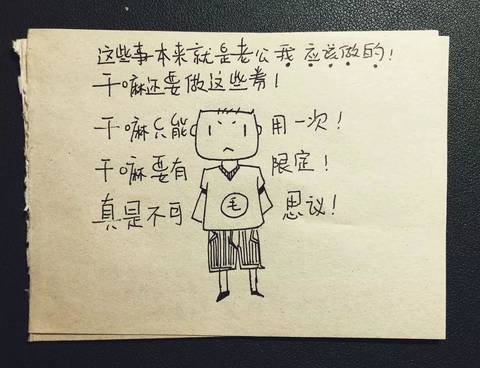 这些事本来就是老公我应该做的!
干嘛还要做这些券!
干嘛只能用一次!
干嘛要有限定!
真是不可思议!
毛